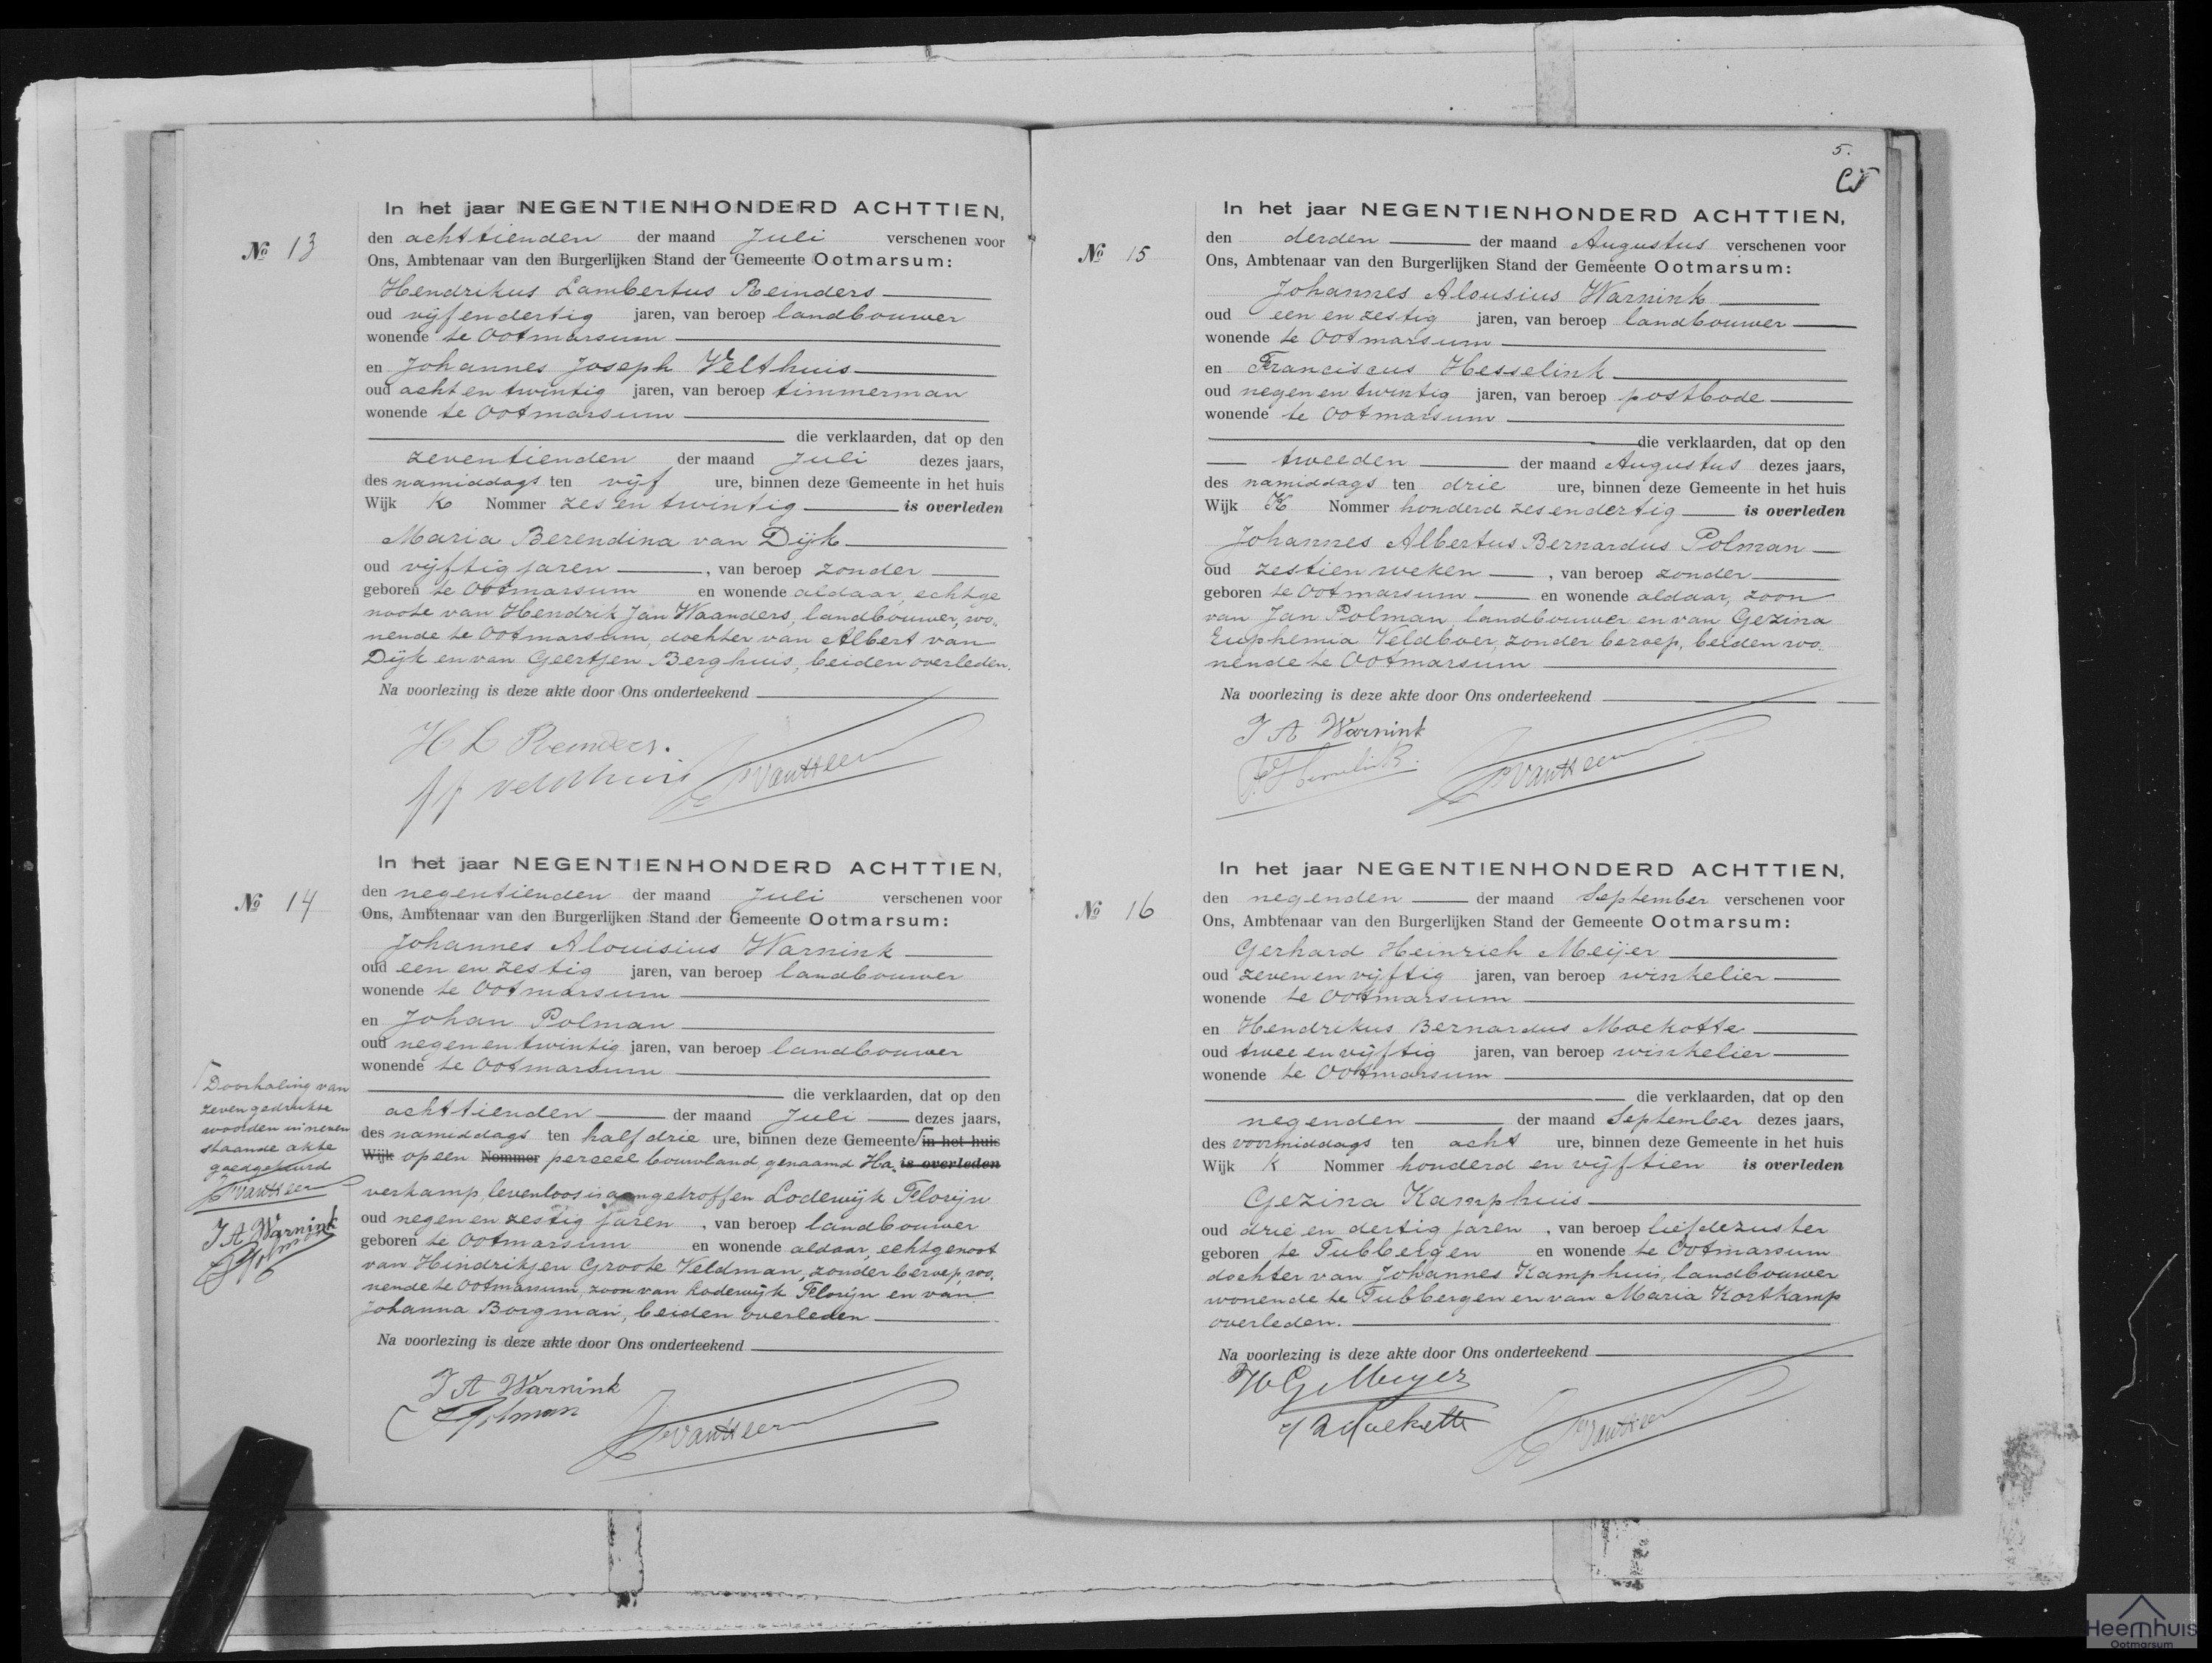 No 13
In het jaar NEGENTIENHONDERD ACHTTIEN,
den achttienden der maand Juli verschenen voor
Ons, Ambtenaar van den Burgerlijken Stand der Gemeente Ootmarsum:
Hendrikus Lambertus Reinders
oud vijfendertig jaren, van beroep landbouwer
wonende te Ootmarsum
en Johannes Joseph Velthuis
oud acht en twintig jaren, van beroep timmerman
wonende te Ootmarsum
die verklaarden, dat op den
zeventienden der maand Juli dezes jaars,
des namiddags ten vijf ure, binnen deze Gemeente in het huis
Wijk K Nommer zes en twintig is overleden
Maria Berendina van Dijk
oud vijftig jaren, van beroep zonder
geboren te Ootmarsum en wonende aldaar, echtge
noote van Hendrik Jan Waanders, landbouwer, wo„
nende te Ootmarsum, dochter van Albert van
Dijk en van Geertjen Berghuis, beiden overleden.
Na voorlezing is deze akte door Ons onderteekend
H L Reinders.
J J Velthuis
VanHeen
No 14
In het jaar NEGENTIENHONDERD ACHTTIEN,
den negentienden der maand Juli verschenen voor
Ons, Ambtenaar van den Burgerlijken Stand der Gemeente Ootmarsum:
Johannes Alouisius Warnink
oud een en zestig jaren, van beroep landbouwer
wonende te Ootmarsum
en Johan Polman
oud negen en twintig jaren, van beroep landbouwer
wonende te Ootmarsum
die verklaarden, dat op den
achttienden der maand Juli dezes jaars,
des namiddags ten half drie ure, binnen deze Gemeente in het huis
Wijk op een Nommer perceel bouwland, genaamd Ha, is overleden
verkamp, levenloos is aangetroffen Lodewijk Florijn
oud negen en zestig jaren, van beroep landbouwer
geboren te Ootmarsum en wonende aldaar, echtgenoot
van Hindrikjen Groote Veldman, zonder beroep, wo.
nende te Ootmarsum, zoon van Lodewijk Florijn en van
Johanna Borgman, beiden overleden
Na voorlezing is deze akte door Ons onderteekend
J A Warnink
J Polman
VanHeen
Doorhaling van
zeven gedrukte
woorden in neven
staande akte
goedgekeurd
VanHeen
J A Warnink
J Polman
5.
No 15
In het jaar NEGENTIENHONDERD ACHTTIEN,
den derden der maand Augustus verschenen voor
Ons, Ambtenaar van den Burgerlijken Stand der Gemeente Ootmarsum:
Johannes Alousius Warnink
oud een en zestig jaren, van beroep landbouwer
wonende te Ootmarsum
en Franciscus Hesselink
oud negen en twintig jaren, van beroep postbode
wonende te Ootmarsum
die verklaarden, dat op den
tweeden der maand Augustus dezes jaars,
des namiddags ten drie ure, binnen deze Gemeente in het huis
Wijk K Nommer honderd zesendertig is overleden
Johannes Albertus Bernardus Polman
oud zestien weken, van beroep zonder
geboren te Ootmarsum en wonende aldaar, zoon
van Jan Polman, landbouwer en van Gezina
Euphemia Veldboer, zonder beroep, beiden wo.
nende te Ootmarsum
Na voorlezing is deze akte door Ons onderteekend
J A Warnink
F. Hesselink.
VanHeen
No 16
In het jaar NEGENTIENHONDERD ACHTTIEN,
den negenden der maand September verschenen voor
Ons, Ambtenaar van den Burgerlijken Stand der Gemeente Ootmarsum:
Gerhard Heinrich Meijer
oud zeven en vijftig jaren, van beroep winkelier
wonende te Ootmarsum
en Hendrikus Bernardus Moekotte
oud twee en vijftig jaren, van beroep winkelier
wonende te Ootmarsum
die verklaarden, dat op den
negenden der maand September dezes jaars,
des voormiddags ten acht ure, binnen deze Gemeente in het huis
Wijk K Nommer honderd en vijftien is overleden
Gezina Kamphuis
oud drie en dertig jaren, van beroep liefdezuster
geboren te Tubbergen en wonende te Ootmarsum
dochter van Johannes Kamphuis, landbouwer
wonende te Tubbergen en van Maria Kortkamp
overleden.
Na voorlezing is deze akte door Ons onderteekend
Meijer
Moekotte
VanHeen
Heemhuis
Ootmarsum